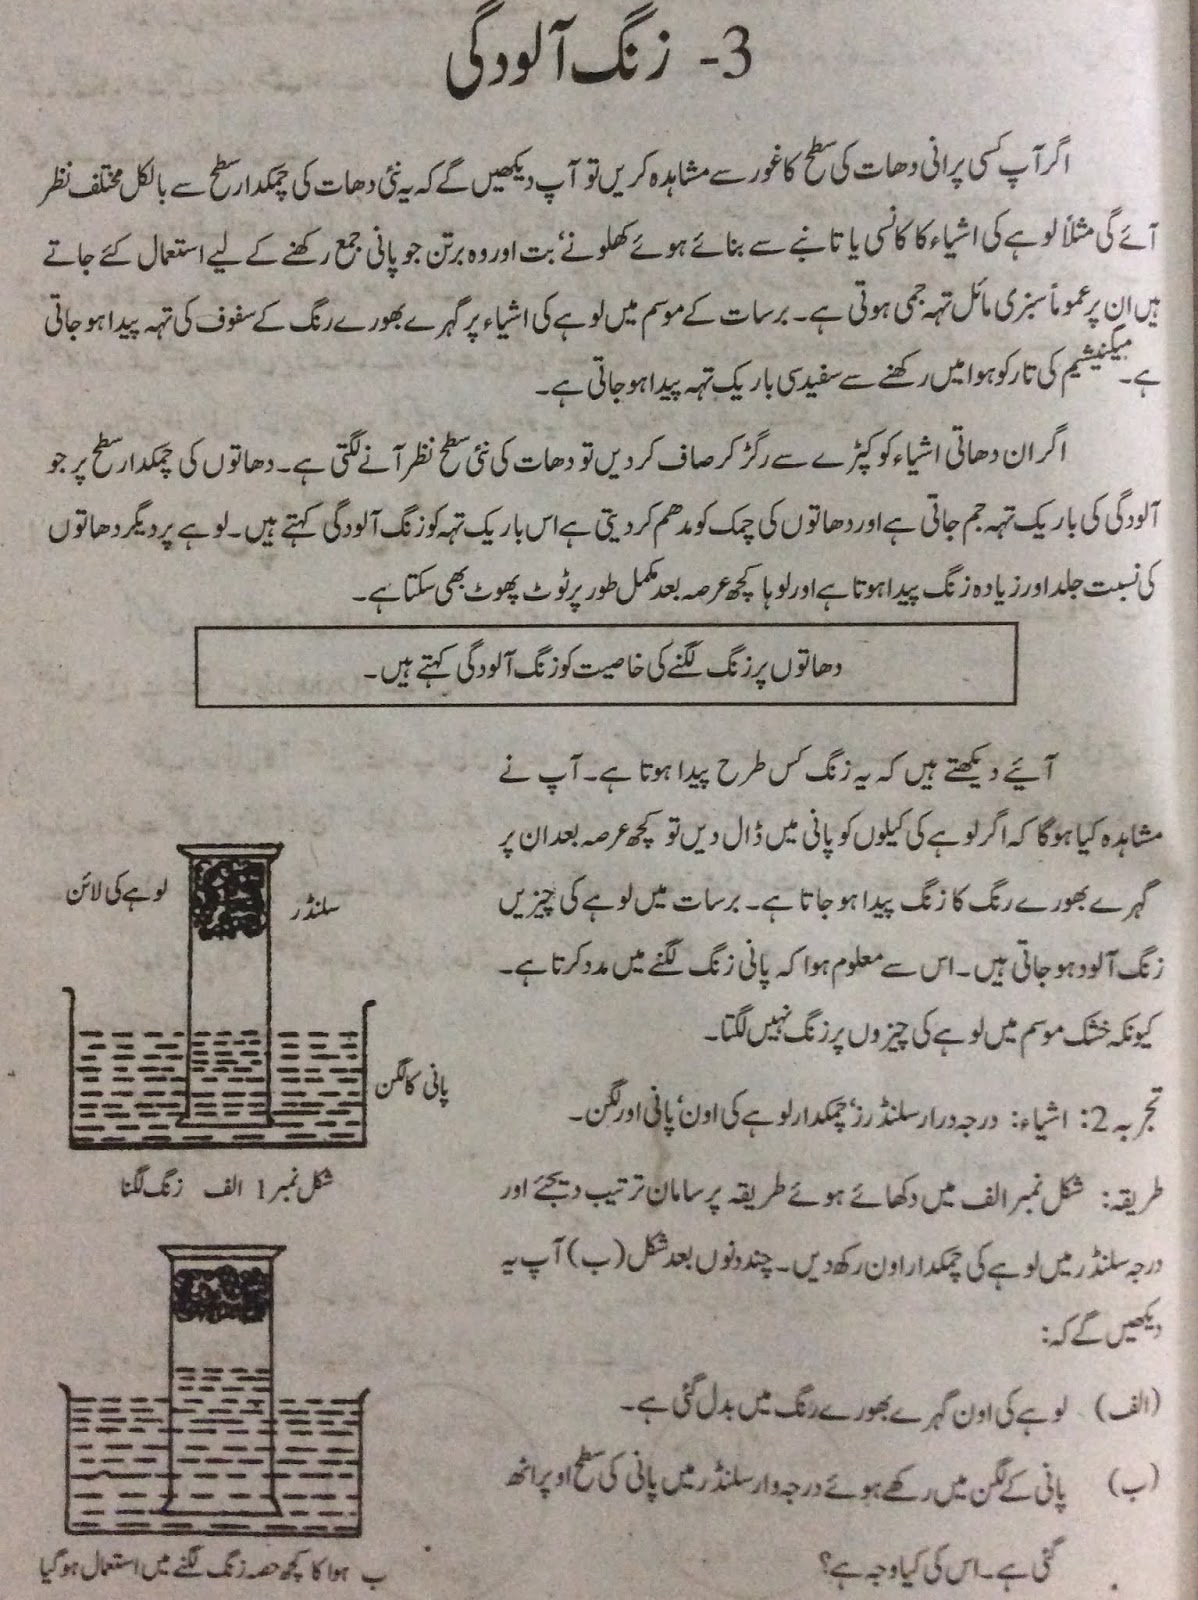 3- زنگ آلودگی
اگر آپ کسی پرانی دھات کی سطح کا غور سے مشاہدہ کریں تو آپ دیکھیں گے کہ یہ نئی دھات کی چمکدار سطح سے بالکل مختلف نظر
آئے گی مثلاً لوہے کی اشیاء کا کانسی یا تانبے سے بنائے ہوئے کھلونے‘ بت اور وہ برتن جو پانی جمع رکھنے کے لیے استعمال کئے جاتے
ہیں ان پر عموماً سبزی مائل تہہ جمی ہوتی ہے۔ برسات کے موسم میں لوہے کی اشیاء پر گہرے بھورے رنگ کے سفوف کی تہہ پیدا ہو جاتی
ہے۔ میگنیشیم کی تار کو ہوا میں رکھنے سے سفید سی باریک تہہ پیدا ہو جاتی ہے۔
اگر ان دھاتی اشیاء کو کپڑے سے رگڑ کر صاف کر دیں تو دھات کی نئی سطح نظر آنے لگتی ہے۔ دھاتوں کی چمکدار سطح پر جو
آلودگی کی باریک تہہ جم جاتی ہے اور دھاتوں کی چمک کو مدھم کر دیتی ہے اس باریک تہہ کو زنگ آلودگی کہتے ہیں۔ لوہے پر دیگر دھاتوں
کی نسبت جلد اور زیادہ زنگ پیدا ہوتا ہے اور لوہا کچھ عرصہ بعد مکمل طور پر ٹوٹ پھوٹ بھی سکتا ہے۔
دھاتوں پر زنگ لگنے کی خاصیت کو زنگ آلودگی کہتے ہیں۔
آیئے دیکھتے ہیں کہ یہ زنگ کس طرح پیدا ہوتا ہے۔ آپ نے
مشاہدہ کیا ہوگا کہ اگر لوہے کی کیلوں کو پانی میں ڈال دیں تو کچھ عرصہ بعد ان پر
گہرے بھورے رنگ کا زنگ پیدا ہو جاتا ہے۔ برسات میں لوہے کی چیزیں
زنگ آلود ہو جاتی ہیں۔ اس سے معلوم ہوا کہ پانی زنگ لگنے میں مدد کرتا ہے۔
کیونکہ خشک موسم میں لوہے کی چیزوں پر زنگ نہیں لگتا۔
تجربہ 2: اشیاء: درجہ درار سلنڈرز‘ چمکدار لوہے کی اون‘ پانی اور لگن۔
طریقہ: شکل نمبر الف میں دکھائے ہوئے طریقہ پر سامان ترتیب دیجئے اور
درجہ سلنڈر میں لوہے کی چمکدار اون رکھ دیں۔ چند دنوں بعد شکل (ب) آپ یہ
دیکھیں گے کہ:
(الف) لوہے کی اون گہرے بھورے رنگ میں بدل گئی ہے۔
(ب) پانی کے لگن میں رکھے ہوئے درجہ وار سلنڈر میں پانی کی سطح اوپر اٹھ
گئی ہے۔ اس کی کیا وجہ ہے؟
لوہے کی لائن
سلنڈر
پانی کا لگن
شکل نمبر 1 الف زنگ لگنا
ب ہوا کا کچھ حصہ زنگ لگنے میں استعمال ہو گیا